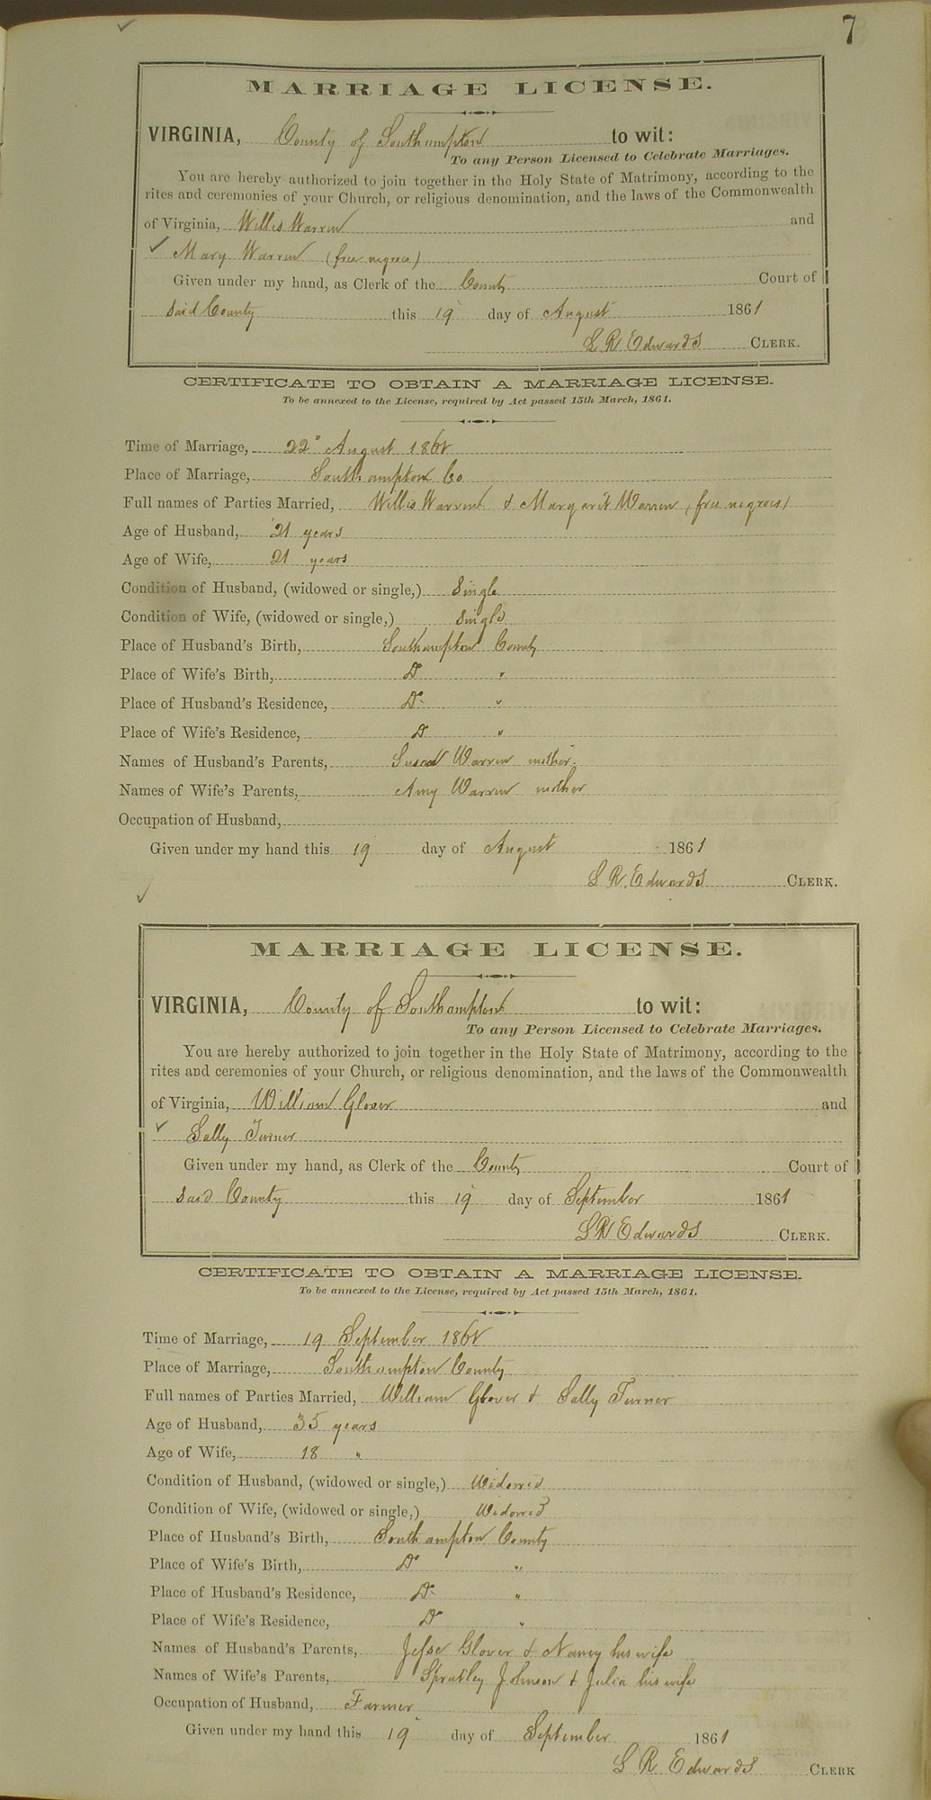 7
MARRIAGE LICENSE.
VIRGINIA, County of Southampton to wit:
To any Person Licensed to Celebrate Marriages.
You are hereby authorized to join together in the Holy State of Matrimony, according to the
rites and ceremonies of your Church, or religious denomination, and the laws of the Commonwealth
of Virginia, Willis Warren and
Mary Warren (free negroes)
Given under my hand, as Clerk of the County Court of
said County this 19 day of August 1861
L R Edwards CLERK.
CERTIFICATE TO OBTAIN A MARRIAGE LICENSE.
To be annexed to the License, required by Act passed 15th March, 1861.
Time of Marriage, 22d August 1861
Place of Marriage, Southampton Co
Full names of Parties Married, Willis Warren & Margaret Warren (free negroes)
Age of Husband, 21 years
Age of Wife, 21 years
Condition of Husband, (widowed or single,) Single
Condition of Wife, (widowed or single,) Single
Place of Husband's Birth, Southampton County
Place of Wife's Birth, Do "
Place of Husband's Residence, Do "
Place of Wife's Residence, Do "
Names of Husband's Parents, Susan Warren mother
Names of Wife's Parents, Amy Warren mother
Occupation of Husband,
Given under my hand this 19 day of August 1861
L R. Edwards CLERK.
MARRIAGE LICENSE.
VIRGINIA, County of Southampton to wit:
To any Person Licensed to Celebrate Marriages.
You are hereby authorized to join together in the Holy State of Matrimony, according to the
rites and ceremonies of your Church, or religious denomination, and the laws of the Commonwealth
of Virginia, William Glover and
Sally Turner
Given under my hand, as Clerk of the County Court of
said County this 19 day of September 1861
L R Edwards CLERK.
CERTIFICATE TO OBTAIN A MARRIAGE LICENSE.
To be annexed to the License, required by Act passed 15th March, 1861.
Time of Marriage, 19 September 1861
Place of Marriage, Southampton County
Full names of Parties Married, William Glover & Sally Turner
Age of Husband, 35 years
Age of Wife, 18 "
Condition of Husband, (widowed or single,) Widowed
Condition of Wife, (widowed or single,) Widowed
Place of Husband's Birth, Southampton County
Place of Wife's Birth, Do "
Place of Husband's Residence, Do "
Place of Wife's Residence, Do "
Names of Husband's Parents, Jesse Glover & Nancy his wife
Names of Wife's Parents, Spratley Johnson & Julia his wife
Occupation of Husband, Farmer
Given under my hand this 19 day of September 1861
L R. Edwards CLERK